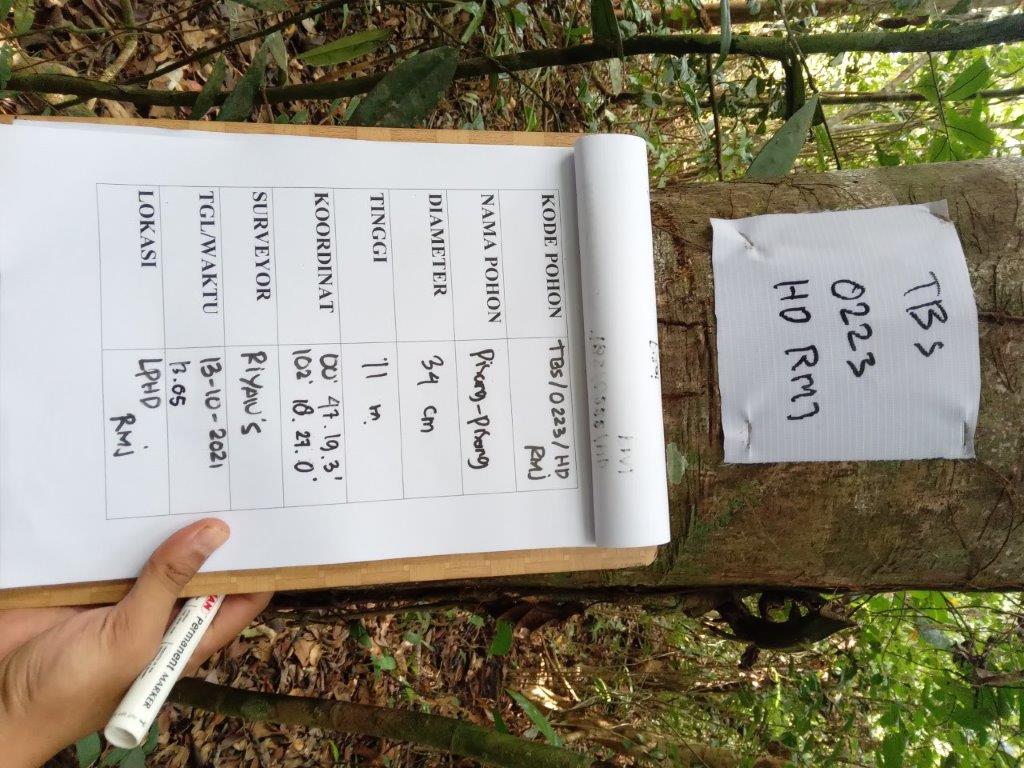 TBS
0223
HD RMJ
KODE POHON TBS/0223/HD
RMJ
NAMA POHON Pisang-pisang
DIAMETER 34 cm
TINGGI 11 m
KOORDINAT 00° 47. 19. 3'
102° 18. 27. 0'
SURVEYOR RIYAN'S
TGL/WAKTU 13-10-2021
13.05
LOKASI LPHD
RMJ
Permanent MARKER